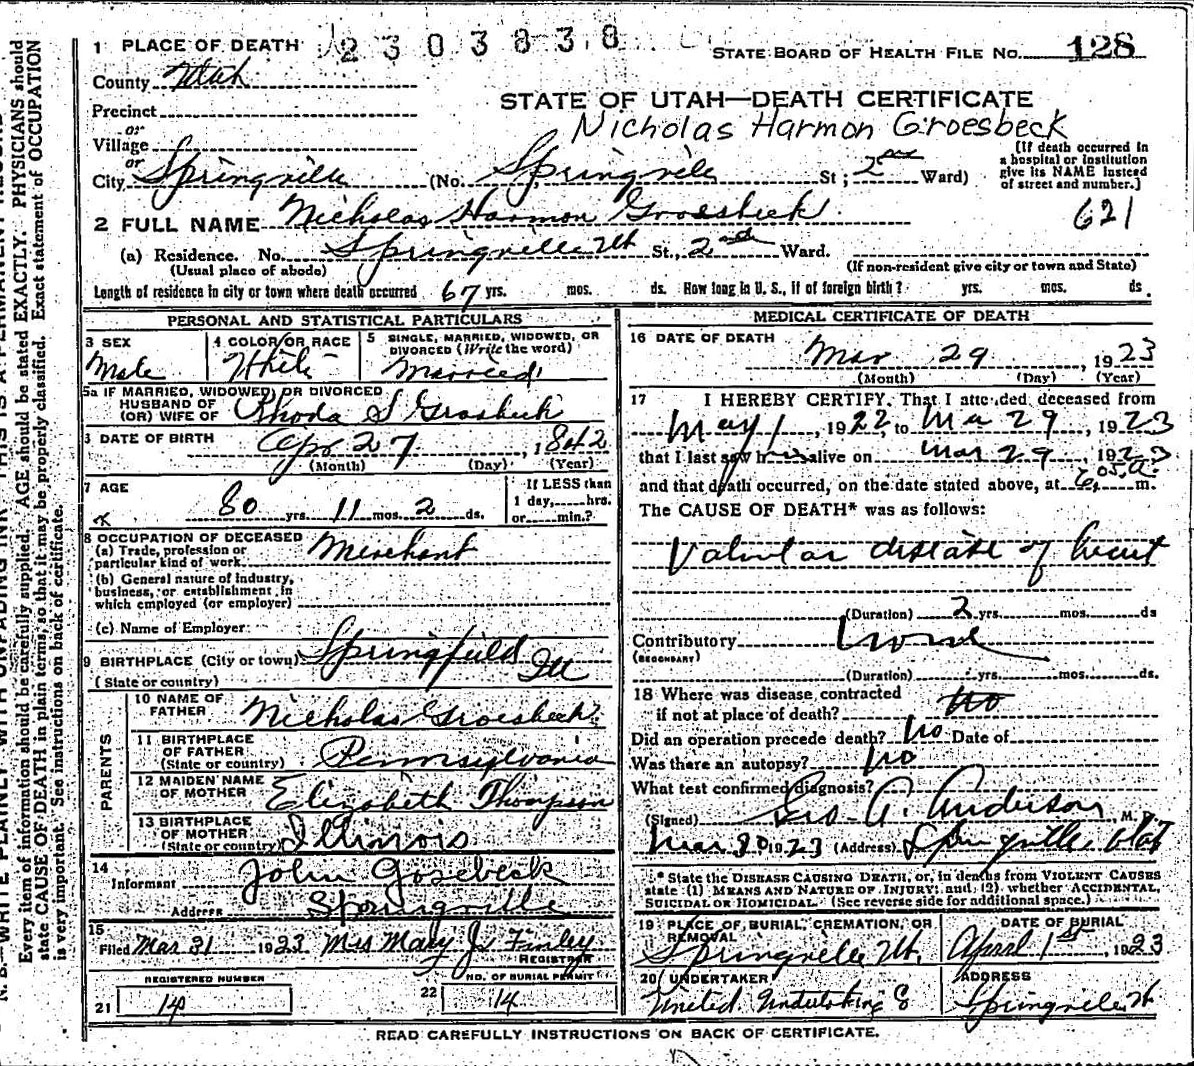 1 PLACE OF DEATH 2303838 STATE BOARD OF HEALTH FILE No. 128
County Utah
STATE OF UTAH—DEATH CERTIFICATE
Precinct
Nicholas Harmon Groesbeck
or
Village
or
City Springville (No. Springville St; 2nd Ward)
[If death occurred in
a hospital or institution
give its NAME instead
of street and number.]
621
2 FULL NAME Nicholas Harmon Groesbeck
(a) Residence. No. Springville Ut St., 2nd Ward.
(Usual place of abode) (If non-resident give city or town and State)
Length of residence in city or town where death occurred 67 yrs. mos. ds. How long in U. S., if of foreign birth? yrs. mos. ds.
PERSONAL AND STATISTICAL PARTICULARS
3 SEX
Male
4 COLOR OR RACE
White
5 SINGLE, MARRIED, WIDOWED, OR
DIVORCED (Write the word)
Married
5a IF MARRIED, WIDOWED, OR DIVORCED
HUSBAND OF
(OR) WIFE OF Rhoda S Grosbeck
6 DATE OF BIRTH Apr 27, 1842
(Month) (Day) (Year)
7 AGE
80 yrs. 11 mos. 2 ds.
If LESS than
1 day, hrs.
or min.?
8 OCCUPATION OF DECEASED
(a) Trade, profession or
particular kind of work Merchant
(b) General nature of industry,
business, or establishment in
which employed (or employer)
(c) Name of Employer
9 BIRTHPLACE (City or town) Springfield
(State or country) Ill
PARENTS
10 NAME OF
FATHER Nicholas Groesbeck
11 BIRTHPLACE
OF FATHER
(State or country) Pennsylvania
12 MAIDEN NAME
OF MOTHER Elizabeth Thompson
13 BIRTHPLACE
OF MOTHER
(State or country) Illinois
14
Informant John Gosebeck
Address Springville
15
Filed Mar 31 1923 Mrs Mary J. Finley
REGISTRAR
REGISTERED NUMBER
21 14
NO. OF BURIAL PERMIT
22 14
MEDICAL CERTIFICATE OF DEATH
16 DATE OF DEATH
Mar 29, 1923
(Month) (Day) (Year)
17 I HEREBY CERTIFY, That I attended deceased from
May 1, 1922, to Mar 29, 1923
that I last saw him alive on Mar 29, 1923
and that death occurred, on the date stated above, at 6,05 a. m.
The CAUSE OF DEATH* was as follows:
Valvular disease of heart
(Duration) 2 yrs. mos. ds
Contributory none
(SECONDARY)
(Duration) yrs. mos. ds.
18 Where was disease contracted
if not at place of death? no
Did an operation precede death? No Date of
Was there an autopsy? No
What test confirmed diagnosis?
(Signed) Geo A. Anderson, M. D.
Mar 30 1923 (Address) Springville Utah
* State the DISEASE CAUSING DEATH, or, in deaths from VIOLENT CAUSES
state (1) MEANS AND NATURE OF INJURY; and (2) whether ACCIDENTAL,
SUICIDAL OR HOMICIDAL. (See reverse side for additional space.)
19 PLACE OF BURIAL, CREMATION, OR
REMOVAL
Springville Ut.
DATE OF BURIAL
April 1st, 1923
20 UNDERTAKER
United Undertaking
ADDRESS
Springville Ut
READ CAREFULLY INSTRUCTIONS ON BACK OF CERTIFICATE.
N. B.—WRITE PLAINLY WITH UNFADING INK THIS IS A PERMANENT RECORD
Every item of information should be carefully supplied. AGE should be stated EXACTLY. PHYSICIANS should
state CAUSE OF DEATH in plain terms, so that it may be properly classified. Exact statement of OCCUPATION
is very important. See instructions on back of certificate.